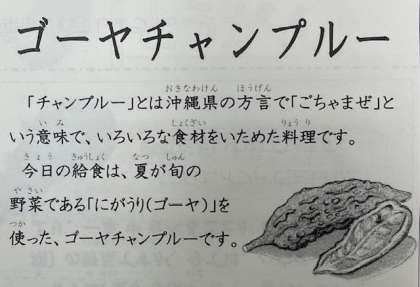 ゴーヤチャンプルー
「チャンブルー」とは沖縄県の方言で「ごちゃまぜ」と
いう意味で、いろいろな食材をいためた料理です。
今日の給食は、夏が旬の
野菜である「にがうり(ゴーヤ)」を
使った、ゴーヤチャンプルーです。